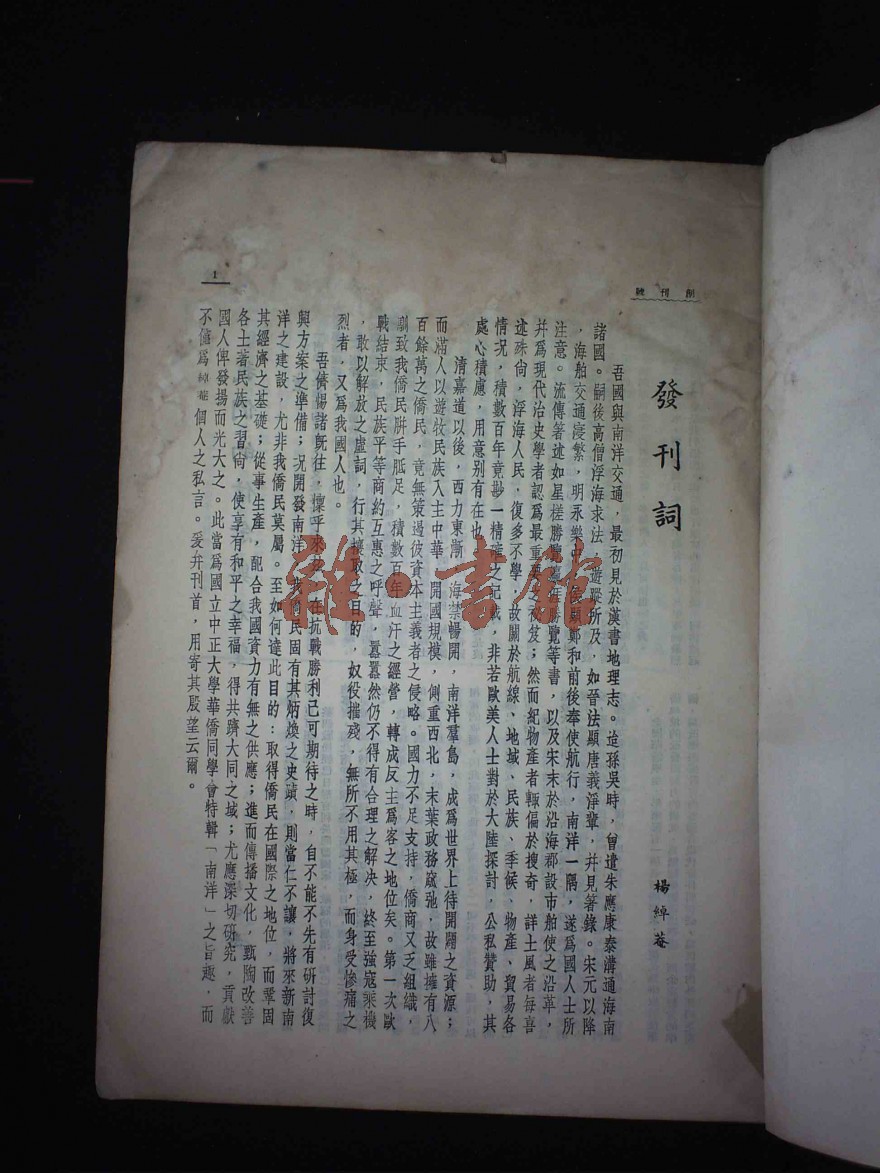 創刊號
發刊詞
楊綽菴
吾國與南洋交通，最初見於漢書地理志。迨孫吳時，曾遣朱應康泰溝通海南
諸國。嗣後高僧浮海求法，遊蹤所及，如晉法顯唐義淨輩，并見著錄。宋元以降
，海舶交通寖繁，明永樂中侯顯鄭和前後奉使航行，南洋一隅，遂爲國人士所
注意。流傳著述如星槎勝覽瀛涯勝覽等書，以及宋末於沿海郡設市舶使之沿革，
并爲現代治史學者認爲最重要之秘笈；然而紀物產者輒偏於搜奇，詳土風者每喜
述殊尙，浮海人民，復多不學，故關於航線、地域、民族、季候、物產、貿易各
情況，積數百年竟尠一精確之記載，非若歐美人士對於大陸探討，公私贊助，其
處心積慮，用意別有在也。
清嘉道以後，西力東漸，海禁暢開，南洋羣島，成爲世界上待開闢之資源；
而滿人以遊牧民族入主中華，開國規模，側重西北，末葉政務窳弛，故雖擁有八
百餘萬之僑民，竟無策遏彼資本主義者之侵略。國力不足支持，僑商又乏組織，
馴致我僑民胼手胝足，積數百年血汗之經營，轉成反主爲客之地位矣。第一次歐
戰結束，民族平等商約互惠之呼聲，囂囂然仍不得有合理之解决，終至強寇乘機
，敢以解放之虛詞，行其攘取之目的，奴役摧殘，無所不用其極，而身受慘痛之
烈者，又爲我國人也。
吾儕惕諸旣往，懍乎來茲，在抗戰勝利已可期待之時，自不能不先有研討復
興方案之準備；況開發南洋，我僑民固有其炳煥之史蹟，則當仁不讓，將來新南
洋之建設，尤非我僑民莫屬。至如何達此目的：取得僑民在國際之地位，而鞏固
其經濟之基礎；從事生產，配合我國資力有無之供應；進而傳播文化，甄陶改善
各土著民族之習尙，使享有和平之幸福，得共躋大同之域；尤應深切研究，貢獻
國人俾發揚而光大之。此當爲國立中正大學華僑同學會特輯「南洋」之旨趣，而
不僅爲綽菴個人之私言。爰弁刊首，用寄其殷望云爾。
1
雜·書館